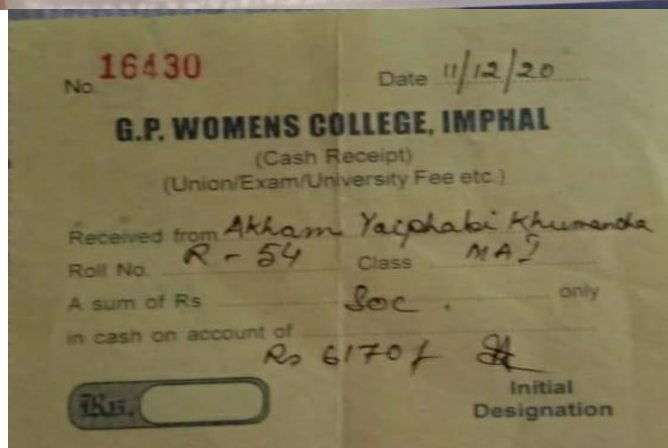 No. 16430 Date 11/12/20
G.P. WOMENS COLLEGE, IMPHAL
(Cash Receipt)
(Union/Exam/University Fee etc.)
Received from Akham Yaiphabi Khumancha
Roll No. R - 54 Class MA I
A sum of Rs. Soc. only
in cash on account of
Rs 6170/
Rs. Initial
Designation